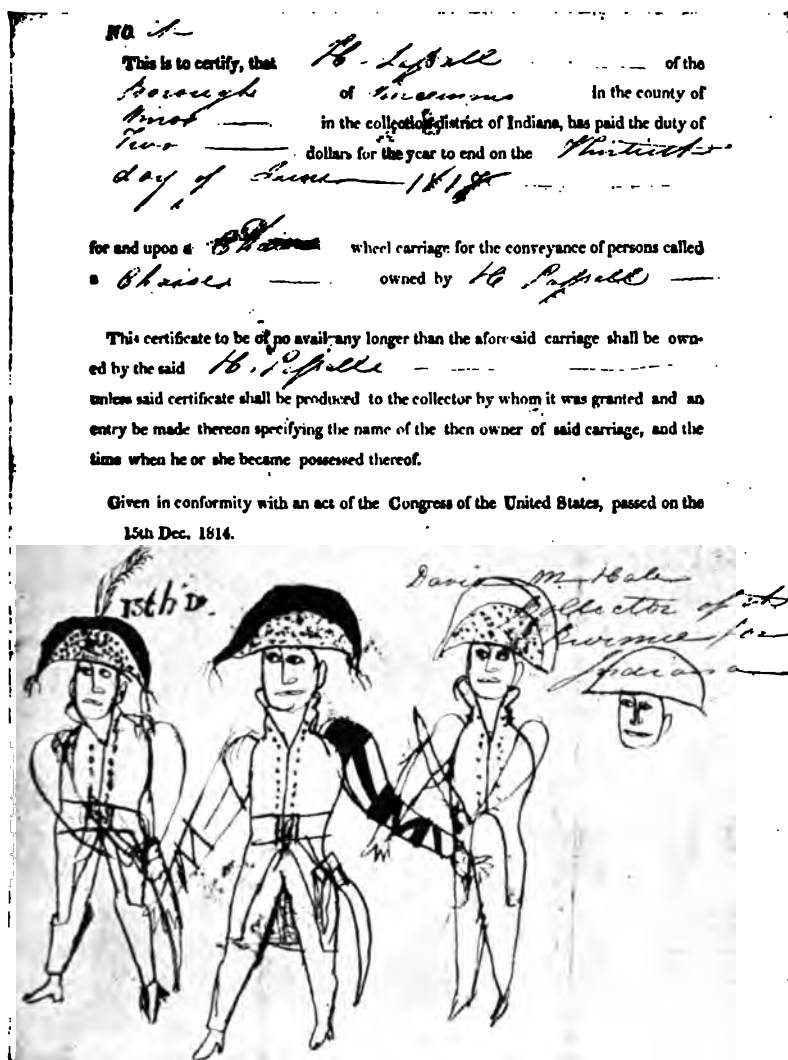 NO.
This is to certify, that H. Lasselle of the
Borough of Vincennes in the county of
Knox in the collection district of Indiana, has paid the duty of
Two dollars for the year to end on the Thirtieth
day of
for and upon a wheel carriage for the conveyance of persons called
a Chaise owned by H. Lasselle
This certificate to be of no avail any longer than the aforesaid carriage shall be own-
ed by the said H. Lasselle
unless said certificate shall be produced to the collector by whom it was granted and an
entry be made thereon specifying the name of the then owner of said carriage, and the
time when he or she became possessed thereof.
Given in conformity with an act of the Congress of the United States, passed on the
15th Dec. 1814.
15th D.
David M Hale
Collector of the
Revenue for
Indiana